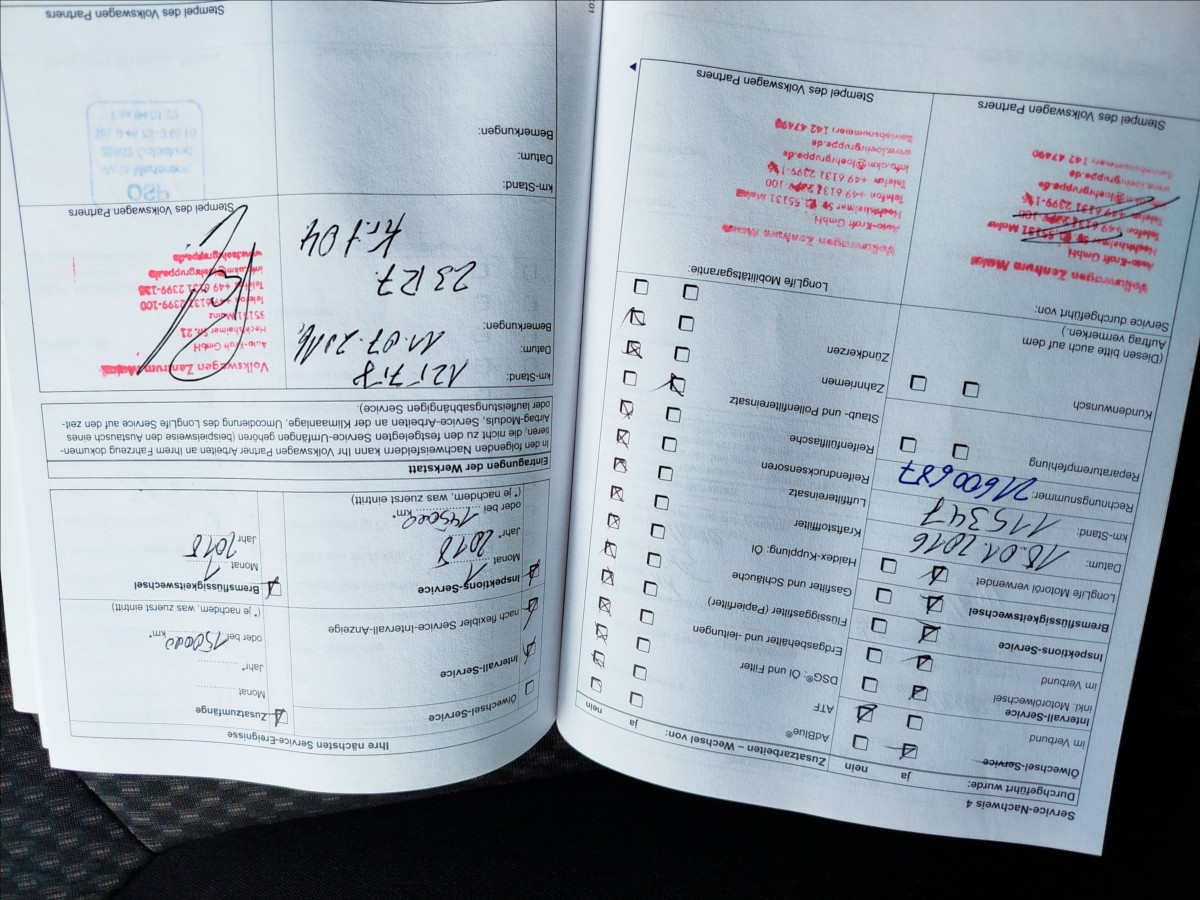 Service-Nachweis 4
Durchgeführt wurde:
ja nein
Ölwechsel-Service
im Verbund
Intervall-Service
inkl. Motorölwechsel
im Verbund
Inspektions-Service
Bremsflüssigkeitswechsel
LongLife Motoröl verwendet
Datum: 18.01.2016
km-Stand: 115347
Rechnungsnummer: 21600687
Reparaturempfehlung
Kundenwunsch
(Diesen bitte auch auf dem
Auftrag vermerken.)
Service durchgeführt von:
Volkswagen Zentrum Mainz
Auto-Kraft GmbH
55131 Mainz
Telefon +49 6131
info.
www.loehrgruppe.de
Betriebsnummer: 142 47490
Stempel des Volkswagen Partners
Zusatzarbeiten – Wechsel von:
ja nein
AdBlue®
ATF
DSG®: Öl und Filter
Erdgasbehälter und -leitungen
Flüssiggasfilter (Papierfilter)
Gasfilter und Schläuche
Haldex-Kupplung: Öl
Kraftstofffilter
Luftfiltereinsatz
Reifendrucksensoren
Reifenfüllflasche
Staub- und Pollenfiltereinsatz
Zahnriemen
Zündkerzen
LongLife Mobilitätsgarantie:
Volkswagen Zentrum Mainz
Auto-Kraft GmbH
55131 Mainz
Telefon +49 6131
www.loehrgruppe.de
Betriebsnummer: 142 47490
Stempel des Volkswagen Partners
Ihre nächsten Service-Ereignisse
Ölwechsel-Service
Intervall-Service
nach flexibler Service-Intervall-Anzeige
Inspektions-Service
Monat 1
Jahr* 2018
oder bei 145000 km*
(* je nachdem, was zuerst eintritt)
Zusatzumfänge
Monat
Jahr*
oder bei 150000 km*
(* je nachdem, was zuerst eintritt)
Bremsflüssigkeitswechsel
Monat 1
Jahr 2018
Eintragungen der Werkstatt
In den folgenden Nachweisfeldern kann Ihr Volkswagen Partner Arbeiten an Ihrem Fahrzeug dokumen-
tieren, die nicht zu den festgelegten Service-Umfängen gehören (beispielsweise den Austausch eines
Airbag-Moduls, Service-Arbeiten an der Klimaanlage, Umcodierung des LongLife Service auf den zeit-
oder laufleistungsabhängigen Service).
km-Stand:
Datum: 11.07.2016
Bemerkungen:
23R7
Volkswagen Zentrum Mainz
Auto-Kraft GmbH
55131 Mainz
Telefon +49 6131 2399-100
www.loehrgruppe.de
Stempel des Volkswagen Partners
km-Stand:
Datum:
Bemerkungen:
Stempel des Volkswagen Partners